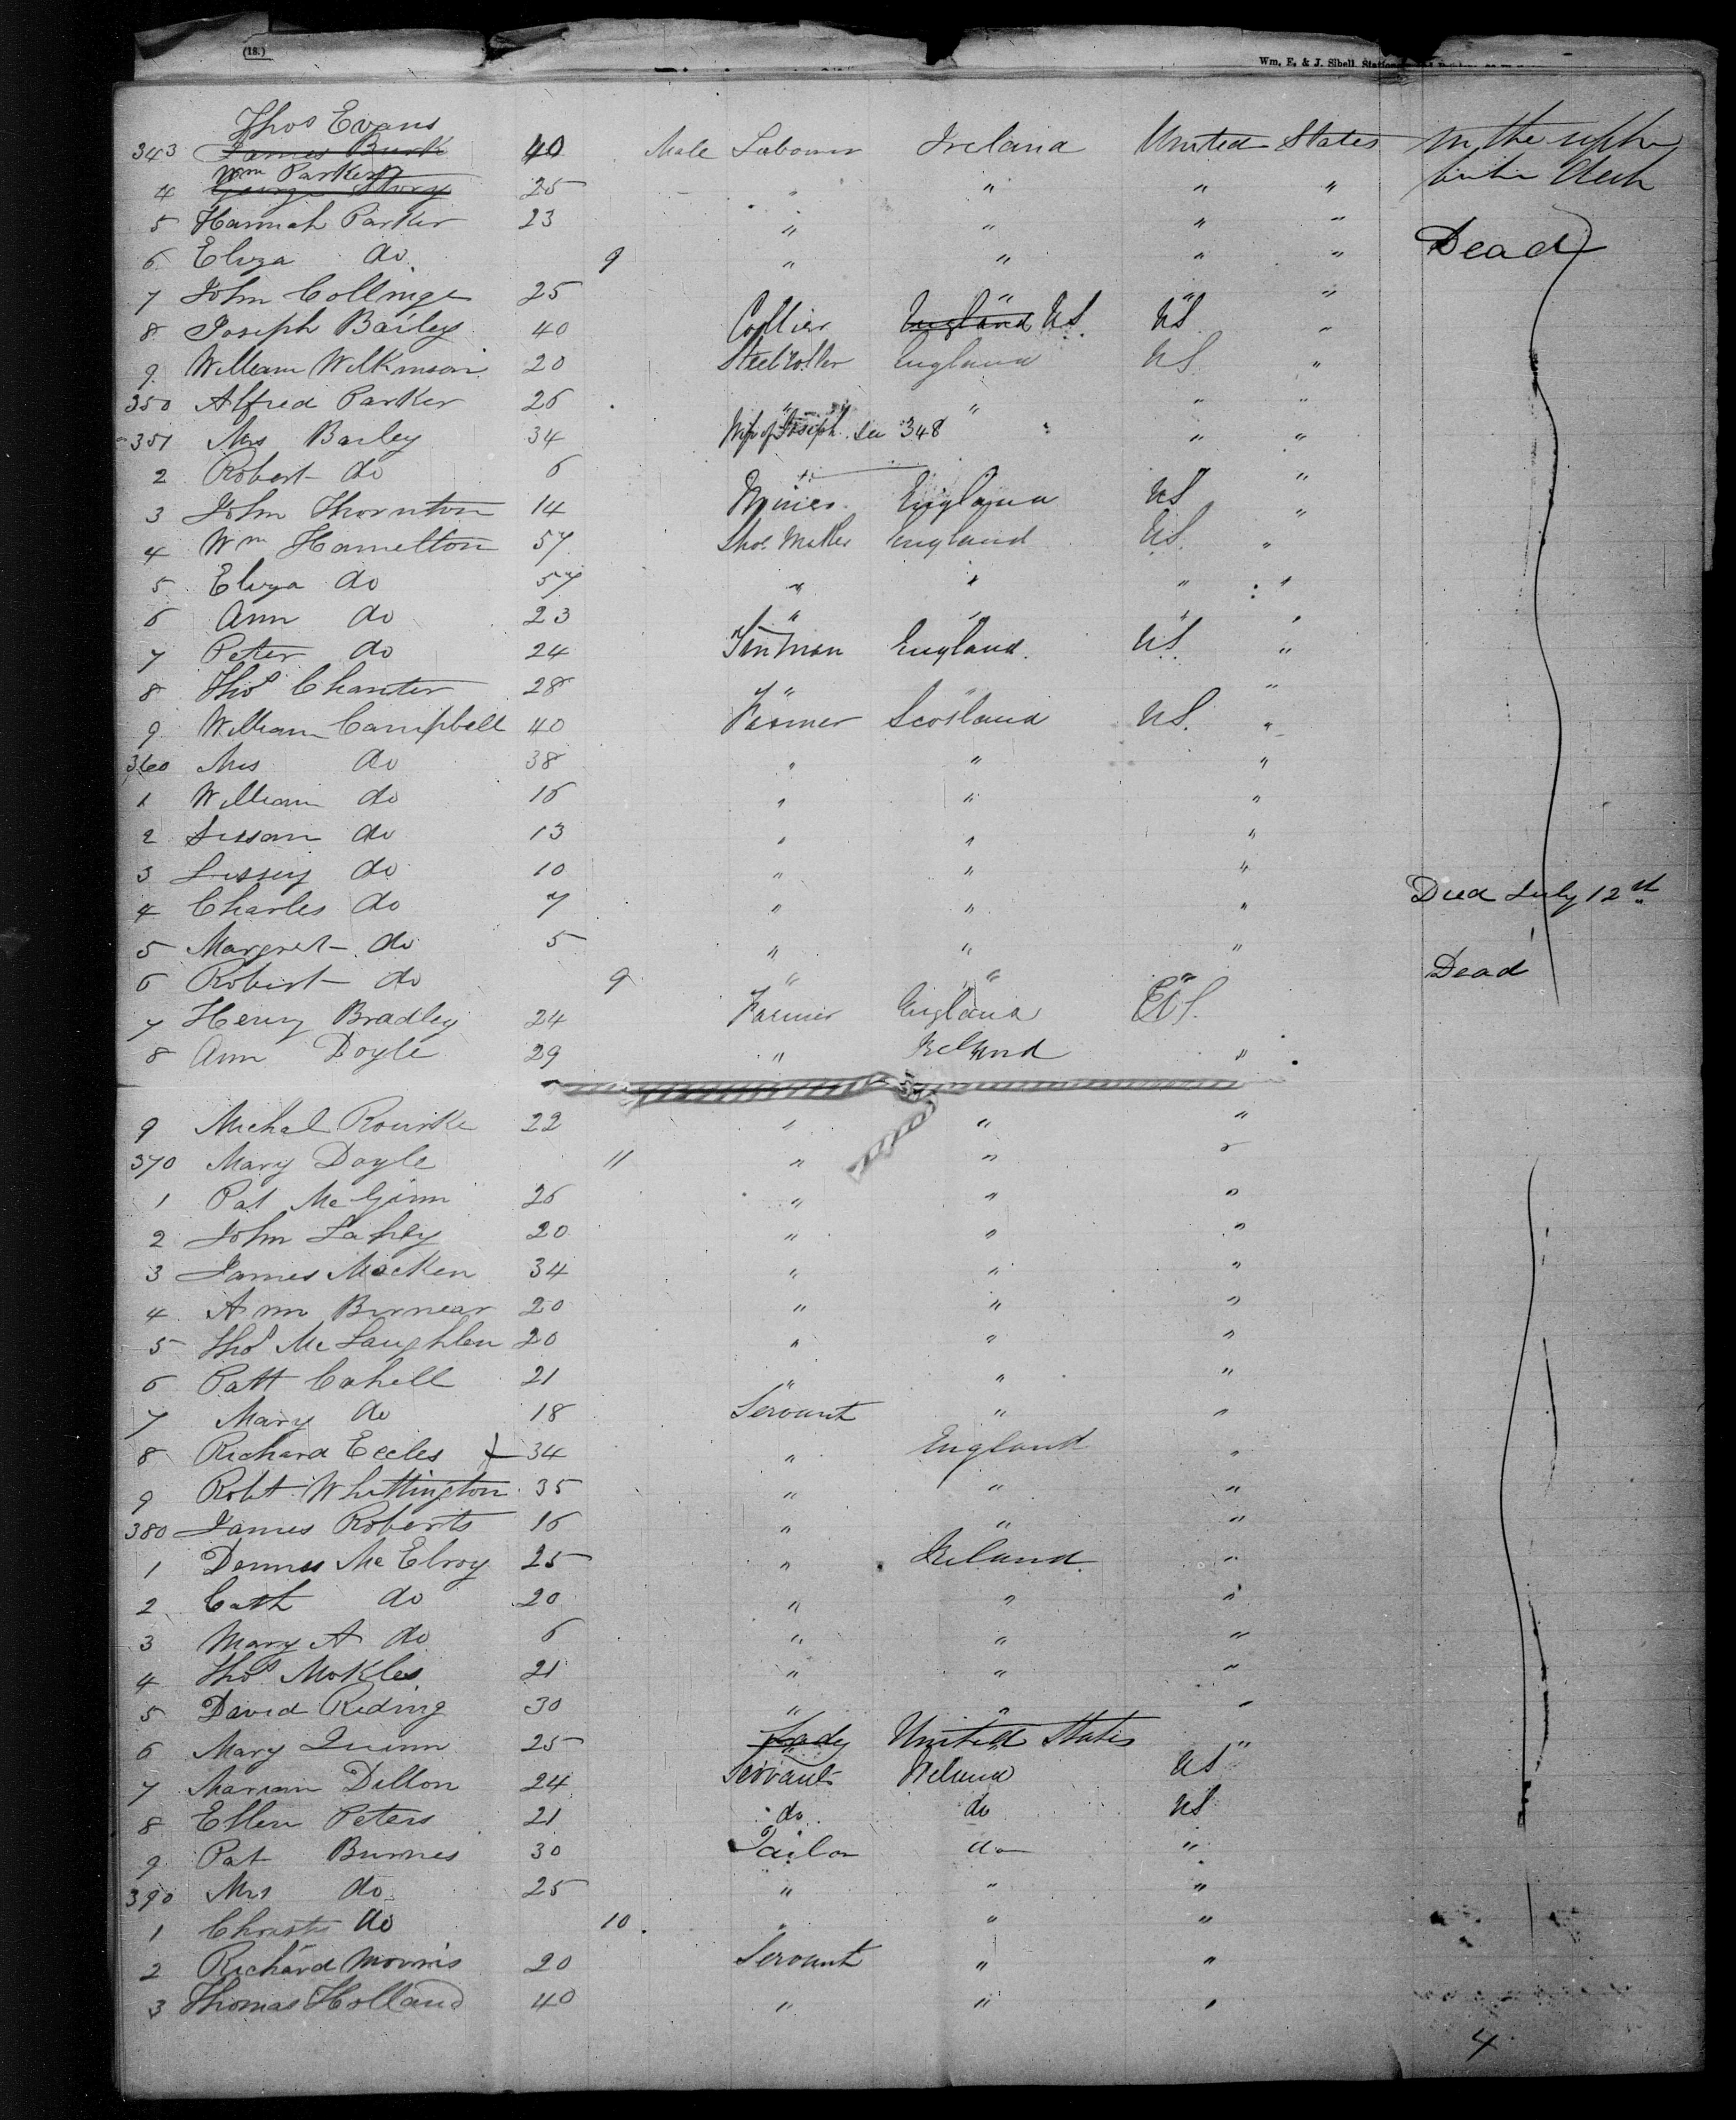 (18.)
Wm. E. & J. Sibell, Station
Thos Evans
343 James Burk 40 Male Labourer Ireland United States In the upper
Wm Parker
4 George Story 25 " " " " Deck
5 Hannah Parker 23 " " " "
6 Eliza do 9 " " " " Dead
7 John Collinge 25 " " "
8 Joseph Bailey 40 Collier England US US "
9 William Wilkinson 20 England US "
350 Alfred Parker 26 " " " "
351 Mrs Barley 34 Wife of Joseph. See 348 " "
2 Robert do 6 "
3 John Thornton 14 Miner England US "
4 Wm Hamelton 57 Shoe Maker England US "
5 Eliza do 57 " " " "
6 Ann do 23 " " " "
7 Peter do 24 Tin Man England US "
8 Thos Chanter 28 " " "
9 William Campbell 40 Farmer Scotland US "
360 Mrs do 38 " " "
1 William do 16 " " "
2 Sussan do 13 " " "
3 Lissey do 10 " " "
4 Charles do 7 " " " Died July 12th
5 Margret do 5 " " "
6 Robert do 9 " " " Dead
7 Henry Bradley 24 Farmer England US
8 Ann Doyle 29 " Ireland "
9 Michal Rourke 22 " " "
370 Mary Doyle 11 " " "
1 Pat McGinn 26 " " "
2 John Fahey 20 " " "
3 James Macken 34 " " "
4 Ann Birnear 20 " " "
5 Thos McLaughlen 20 " " "
6 Patt Cahell 21 " " "
7 Mary do 18 Servant " "
8 Richard Eccles 34 " England "
9 Robt Whittington 35 " " "
380 James Roberts 16 " " "
1 Dennis McElroy 25 " Ireland "
2 Cath do 20 " " "
3 Mary A do 6 " " "
4 Thos Mokler 21 " " "
5 David Riding 30 " " "
6 Mary Quinn 25 Lady United States "
7 Mariam Dillon 24 Servant Ireland US
8 Ellen Peters 21 do do US
9 Pat Burnes 30 Tailor do "
390 Mrs do 25 " " "
1 do 10 " " "
2 Richard Morris 20 Servant " "
3 Thomas Holland 40 " " "
4